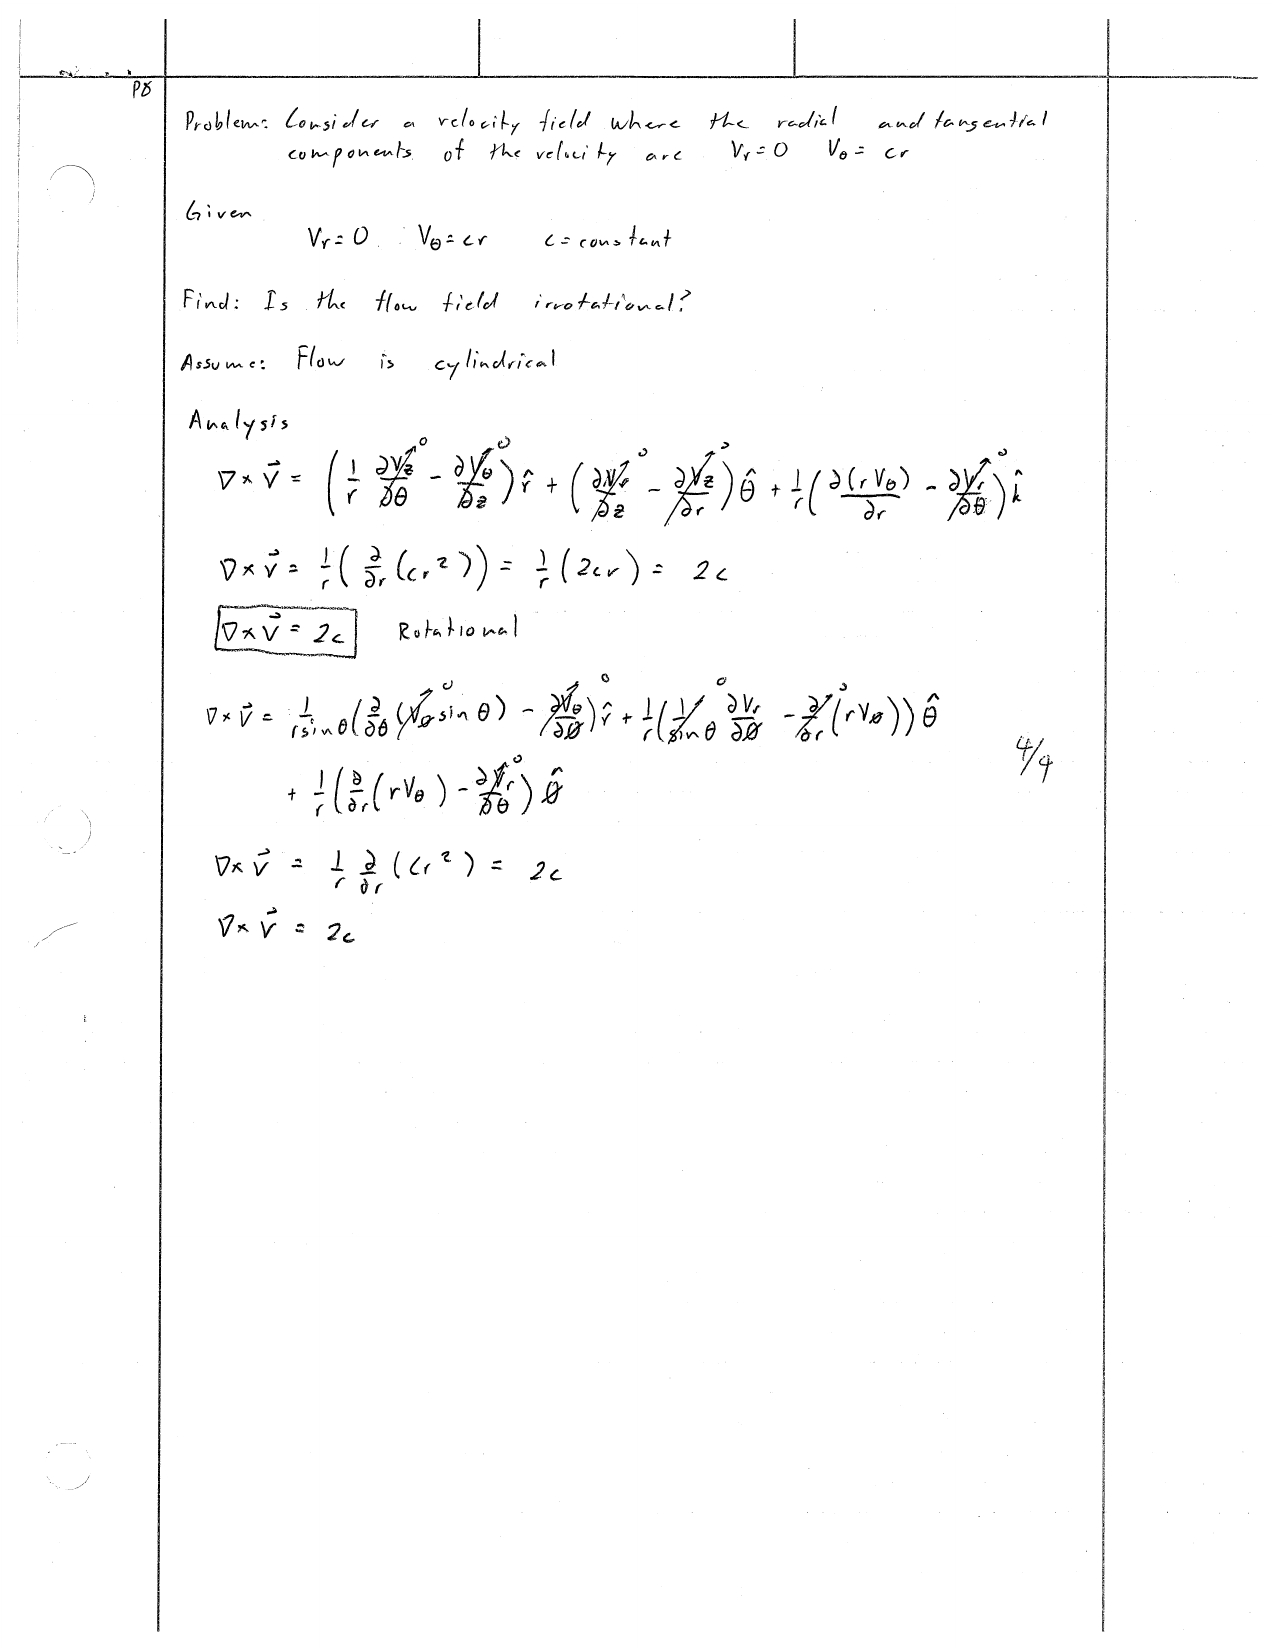 P8
Problem: Consider a velocity field where the radial and tangential
components of the velocity are Vr=0 Vθ= cr
Given
Vr=0 Vθ=cr c=constant
Find: Is the flow field irrotational?
Assume: Flow is cylindrical
Analysis
∇×V⃗ = (1/r ∂Vz/∂θ⁰ - ∂Vθ/∂z⁰) r̂ + (∂Vr/∂z⁰ - ∂Vz/∂r⁰) θ̂ + 1/r (∂(rVθ)/∂r - ∂Vr/∂θ⁰) k̂
∇×V⃗ = 1/r (∂/∂r (cr²)) = 1/r (2cr) = 2c
∇×V⃗ = 2c Rotational
∇×V⃗ = 1/(r sin θ) (∂/∂θ (Vø⁰ sin θ) - ∂Vθ/∂ø⁰) r̂ + 1/r (1/sin θ ∂Vr/∂ø⁰ - ∂/∂r⁰ (rVø)) θ̂
4/4
+ 1/r (∂/∂r (rVθ) - ∂Vr/∂θ⁰) ø̂
∇×V⃗ = 1/r ∂/∂r (cr²) = 2c
∇×V⃗ = 2c